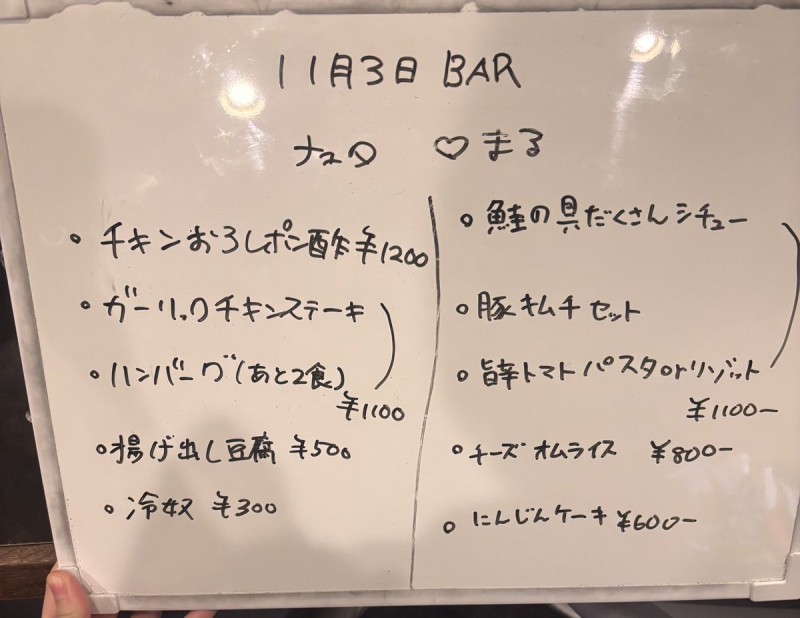 11月3日 BAR
ナュタ ♡まる
・チキンおろしポン酢 ¥1200
・ガーリックチキンステーキ
・ハンバーグ(あと2食)
¥1100
・揚げ出し豆腐 ¥500
・冷奴 ¥300
・鮭の具だくさんシチュー
・豚キムチセット
・旨辛トマトパスタorリゾット
¥1100-
・チーズオムライス ¥800-
・にんじんケーキ ¥600-